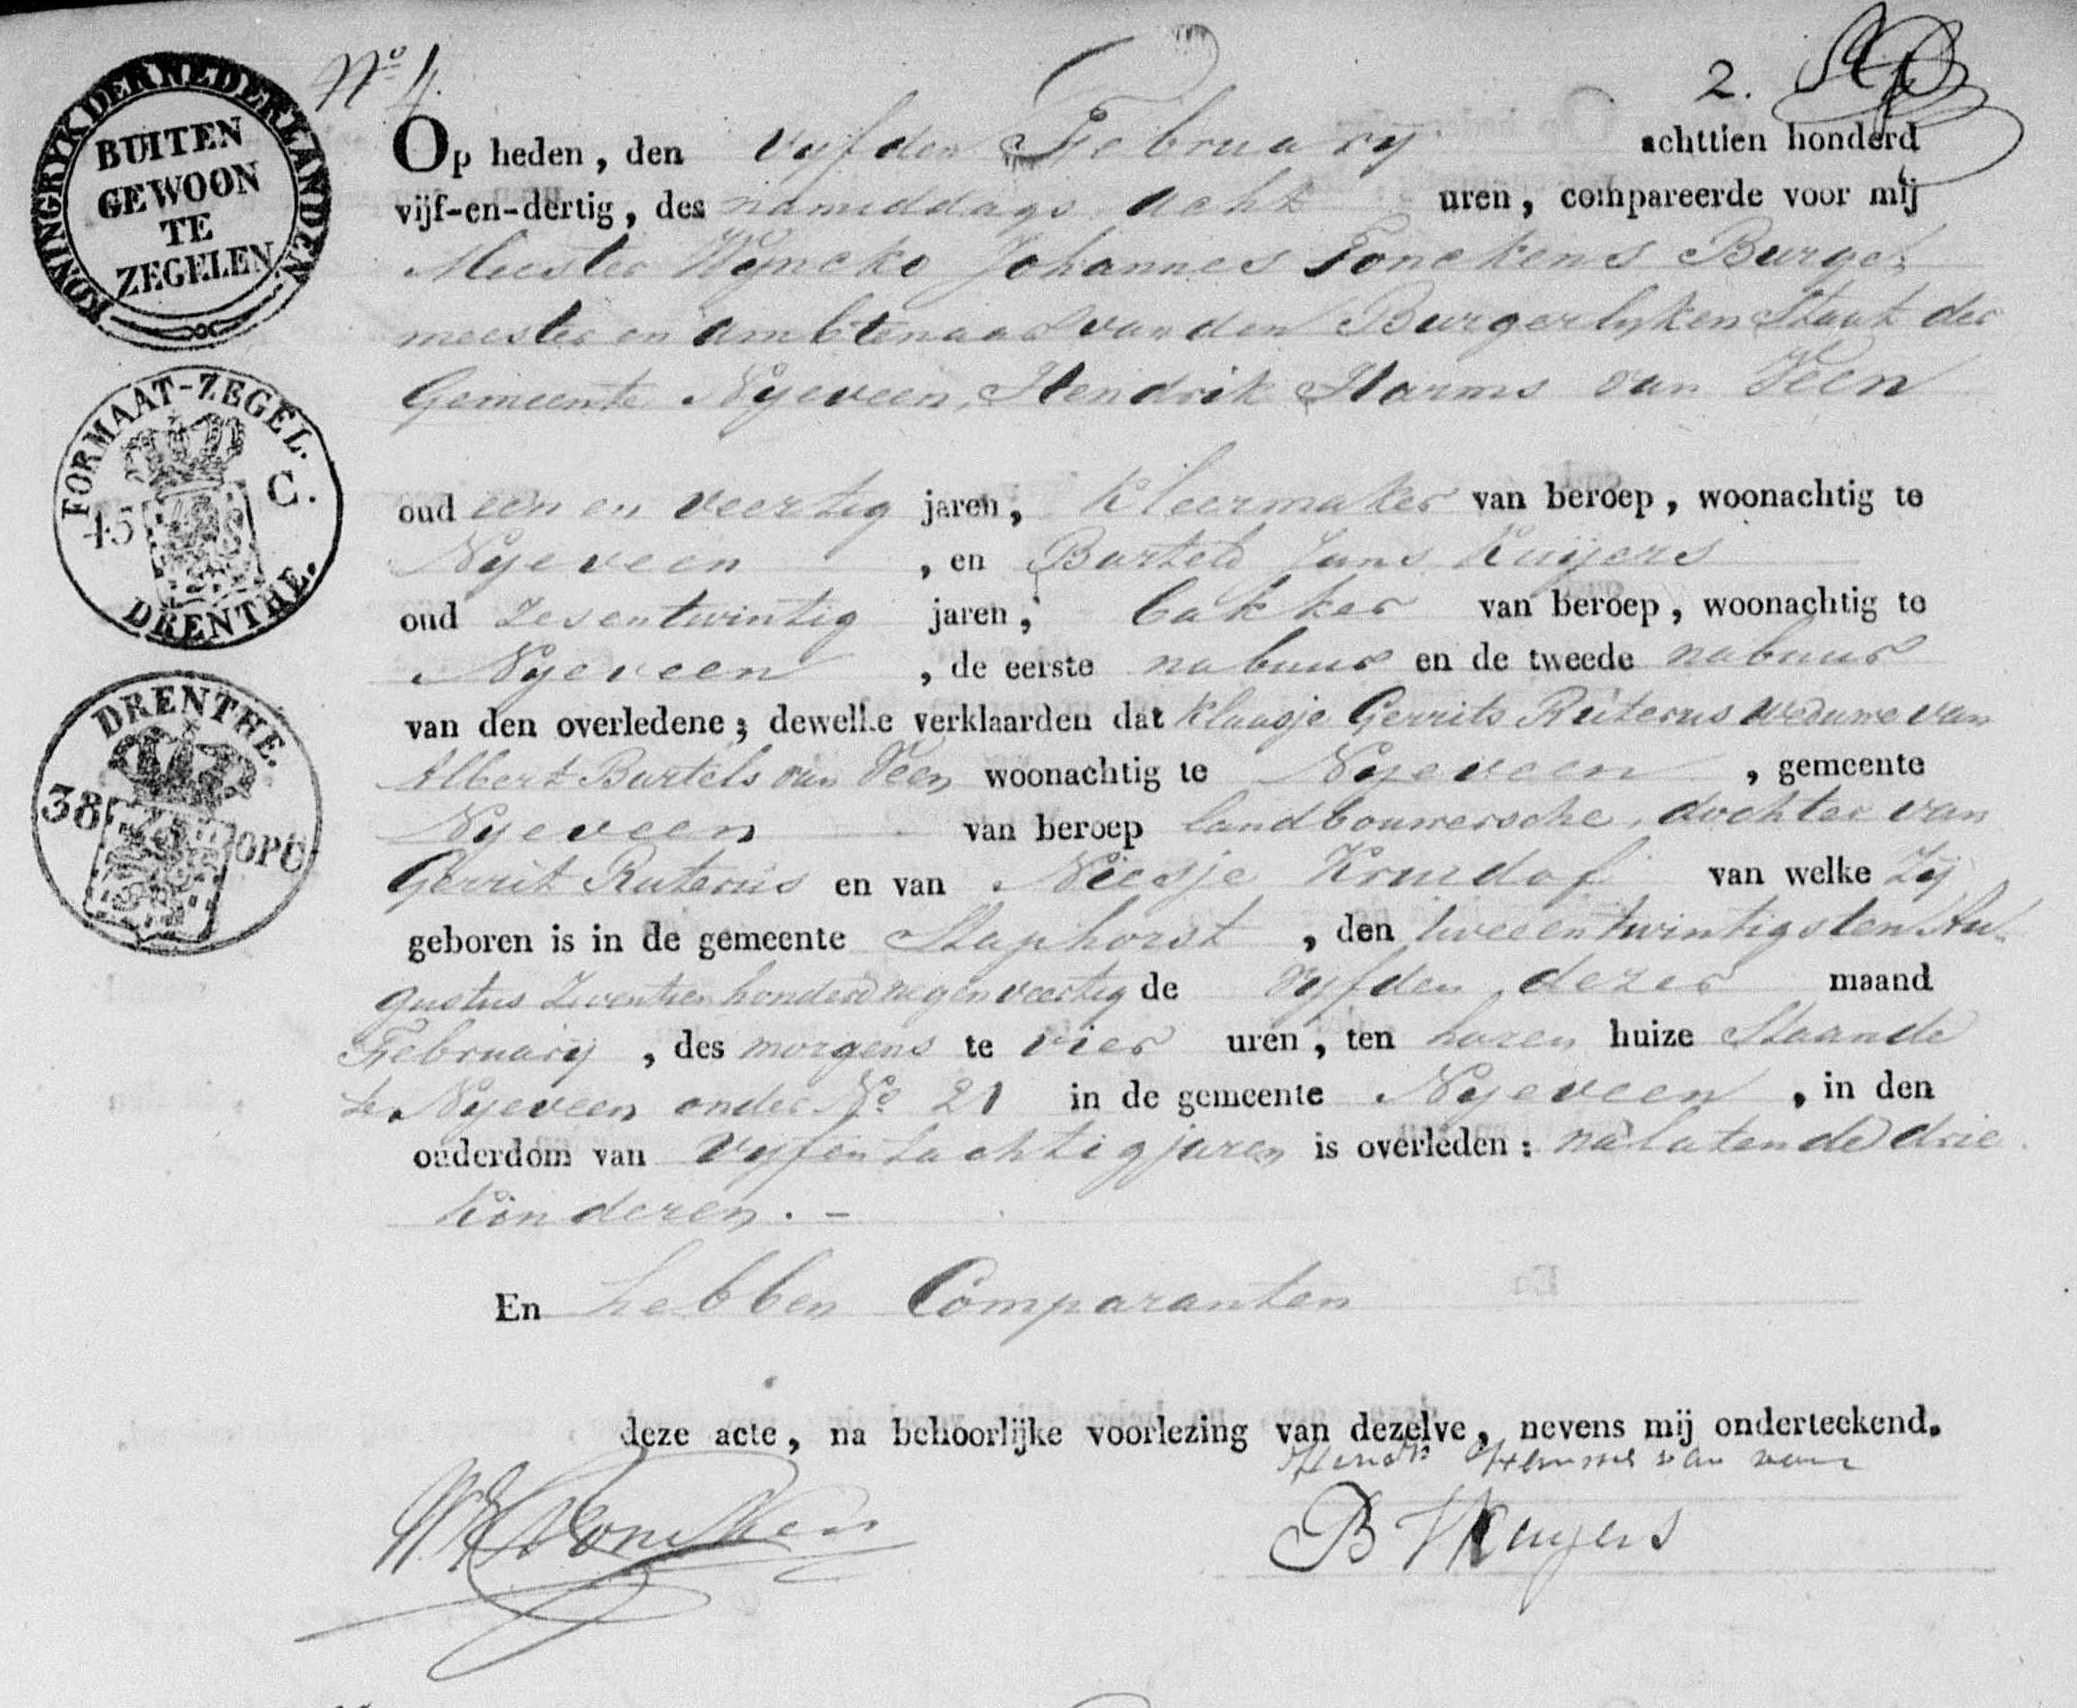 KONINGRYK DER NEDERLANDEN
BUITEN
GEWOON
TE
ZEGELEN
FORMAAT-ZEGEL.
45 C.
DRENTHE.
DRENTHE.
38 OPC
No 4.
2.
Op heden, den vyfden February achttien honderd
vijf-en-dertig, des namiddags acht uren, compareerde voor mij
Meester Wyncko Johannes Tonckens Burge-
meester en ambtenaar van den Burgerlyken Staat der
Gemeente Nyeveen, Hendrik Harms van Veen
oud een en veertig jaren, Kleermaker van beroep, woonachtig te
Nyeveen, en Barteld Jans Kuijers
oud zesentwintig jaren, bakker van beroep, woonachtig te
Nyeveen, de eerste nabuur en de tweede nabuur
van den overledene; dewelke verklaarden dat Klaasje Gerrits Ruterus weduwe van
Albert Bartels van Veen woonachtig te Nyeveen, gemeente
Nyeveen van beroep landbouwersche, dochter van
Gerrit Ruterus en van Niesje van welke Zij
geboren is in de gemeente Staphorst, den tweeentwintigsten Au-
gustus Zeventien honderd negenveertig de vyfden dezer maand
February, des morgens te vier uren, ten haren huize Staande
te Nyeveen onder No 21 in de gemeente Nyeveen, in den
ouderdom van vyfentachtig jaren is overleden: nalatende drie
Kinderen. -
En hebben Comparanten
deze acte, na behoorlijke voorlezing van dezelve, nevens mij onderteekend.
Hendrik Harms van veen
WJTonckens
B J Kuyers